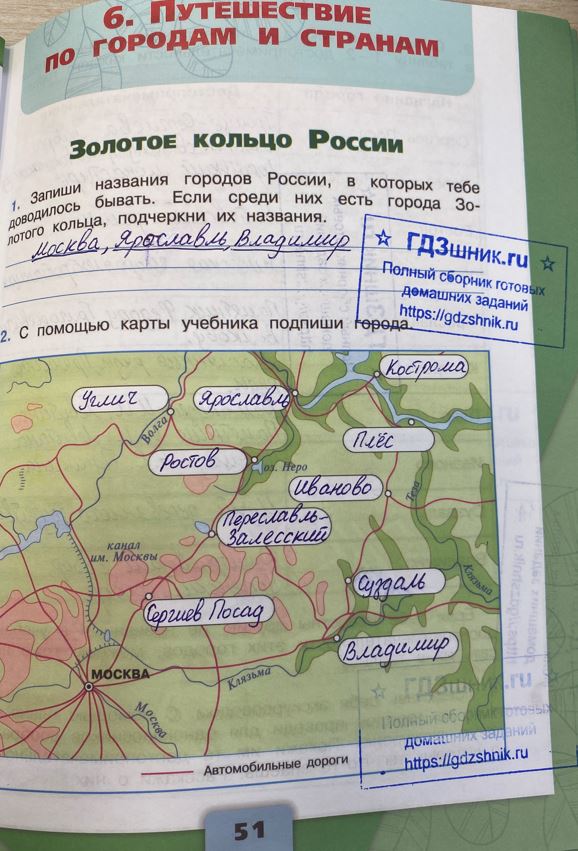 6. Путешествие
по городам и странам
Золотое кольцо России
1. Запиши названия городов России, в которых тебе
доводилось бывать. Если среди них есть города Зо-
лотого кольца, подчеркни их названия.
Москва, Ярославль, Владимир
☆ ГДЗшник.ru ☆
Полный сборник готовых
домашних заданий
https://gdzshnik.ru
2. С помощью карты учебника подпиши города.
Кострома
Углич
Ярославль
Волга
Плёс
Ростов
оз. Неро
Иваново
Теза
Переславль-
Залесский
канал
им. Москвы
Клязьма
Суздаль
Сергиев Посад
Владимир
МОСКВА
Клязьма
Москва
☆ ГДЗшник.ru
Полный сборник готовых
домашних заданий
https://gdzshnik.ru
Автомобильные дороги
51